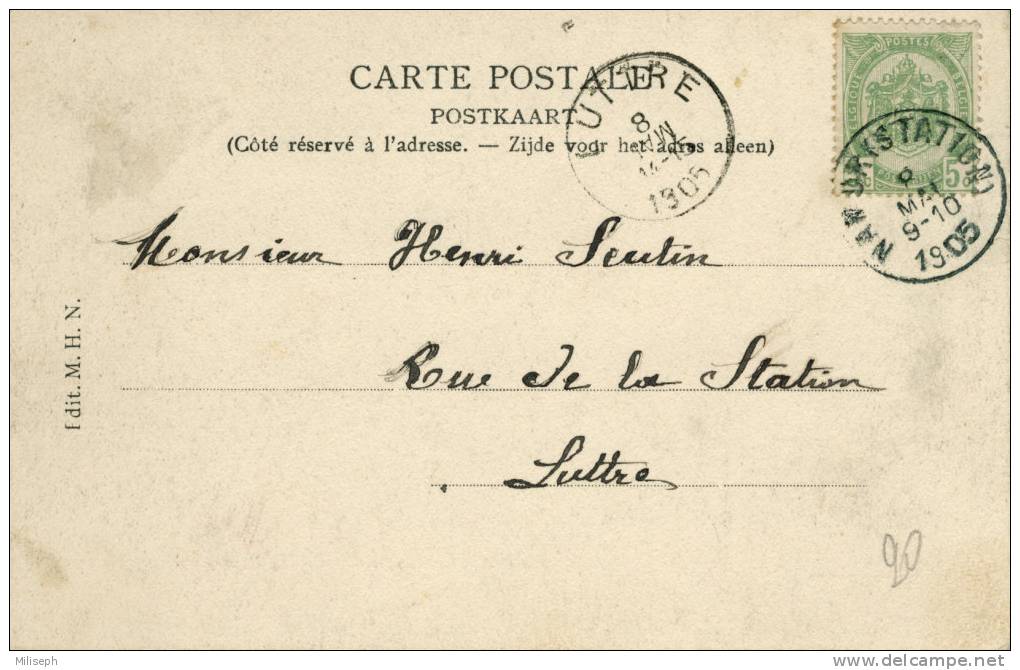 CARTE POSTALE
POSTKAART
(Côté réservé à l'adresse. — Zijde voor het adres alleen)
POSTES
BELGIQUE
BELGIE
5
LUTTRE
8
14-15
1905
NAMUR (STATION)
8
MAI
9-10
1905
Monsieur Henri Seutin
Rue de la Station
Luttre
Edit. M. H. N.
20
Miliseph
delcampe.net